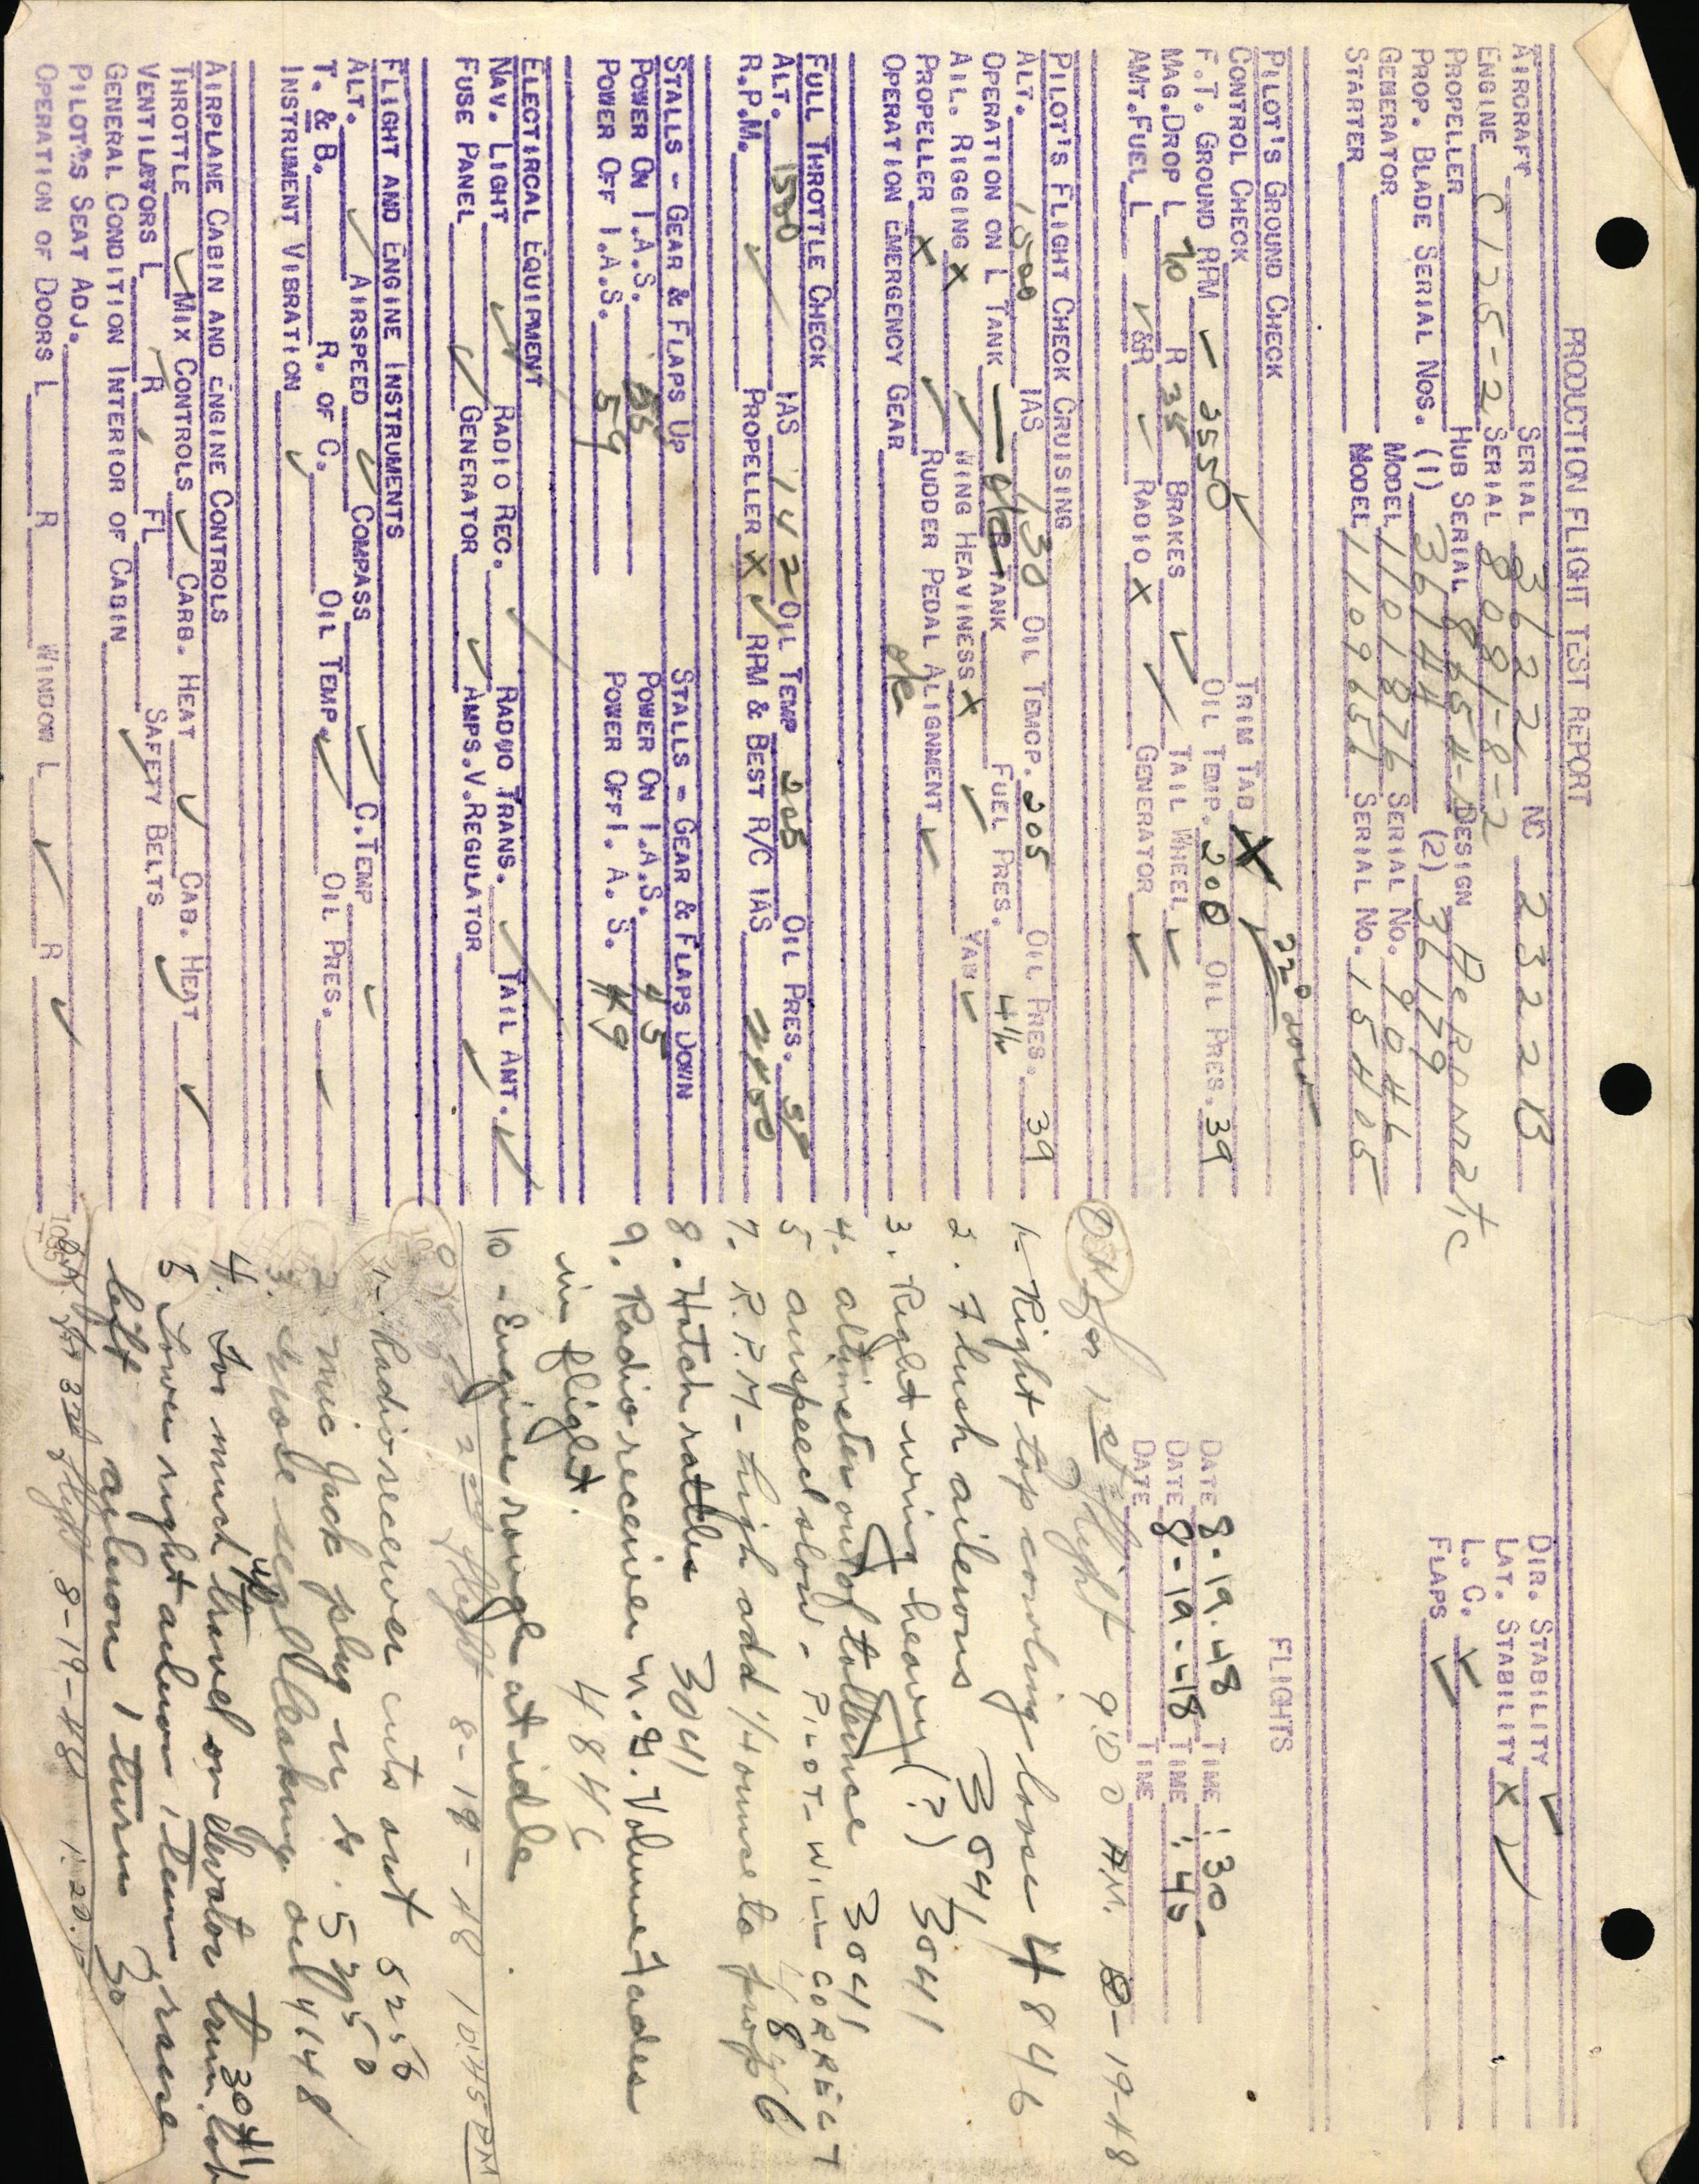 PRODUCTION FLIGHT TEST REPORT
AIRCRAFT SERIAL 3622 NC 2322B
ENGINE C125-2 SERIAL 8081-8-2
PROPELLER HUB SERIAL 8654- DESIGN AEROMATIC
PROP. BLADE SERIAL NOS. (1) 36144 (2) 36179
GEMERATOR MODEL 1101876 SERIAL NO.
STARTER MODEL 1109656 SERIAL NO. 15405
DIR. STABILITY
LAT. STABILITY X
L. G.
FLAPS
PILOT'S GROUND CHECK
CONTROL CHECK TRIM TAB X 22°
F.T. GROUND RPM 2550 OIL TEMP. 200 OIL PRES. 39
MAG.DROP L 70 R 35 BRAKES TAIL WHEEL
AMT.FUEL L &R RADIO X GENERATOR
FLIGHTS
DATE 8-19-48 TIME :30
DATE 8-19-48 TIME :45
DATE TIME
PILOT'S FLIGHT CHECK CRUISING
ALT. 1500 IAS 130 OIL TEMCP. 205 OIL PRES. 39
OPERATION ON L TANK TANK FUEL PRES. 4½
AIL. RIGGING X WING HEAVINESS X YAW
PROPELLER X RUDDER PEDAL ALIGNMENT
OPERATION EMERGENCY GEAR
FULL THROTTLE CHECK
ALT. 1500 IAS 142 OIL TEMP 205 OIL PRES.
R.P.M. PROPELLER X RPM & BEST R/C IAS
STALLS - GEAR & FLAPS UP STALLS - GEAR & FLAPS DOWN
POWER ON I.A.S. 55 POWER ON I.A.S. 45
POWER OFF I.A.S. 59 POWER OFFI. A. S. 49
ELECTIRCAL EQUIPMENT
NAV. LIGHT RADIO REC. RADIO TRANS. TAIL ANT.
FUSE PANEL GENERATOR AMPS.V.REGULATOR
FLIGHT AND ENGINE INSTRUMENTS
ALT. AIRSPEED COMPASS C.TEMP
T. & B. R. OF C. OIL TEMP. OIL PRES.
INSTRUMENT VIBRATION
AIRPLANE CABIN AND ENGINE CONTROLS
THROTTLE MIX CONTROLS CARB. HEAT CAB. HEAT
VENTILATORS L R FL SAFETY BELTS
GENERAL CONDITION INTERIOR OF CABIN
PILOT'S SEAT ADJ.
OPERATION OF DOORS L R WINDOW L R
1st Flight 9:00 AM. 8-19-48
1- Right top cowling loose 4846
2. Flush ailerons 3041
3. Right wing heavy (?) 3041
4. altimeter out of tollerance 3041
5 airspeed slow - PILOT WILL CORRECT
7. R.P.M - high add ¼ ounce to prop
8. Hatch rattles 3041
9. Radio receiver N.G. Volume fades
in flight. 4846
10 - Engine rough at idle
2nd flight 8-19-48 10:45
1- Radio receiver cuts out 5250
2. mic Jack plug
3. nose seal leaking oil
4. To much up travel on elevator trim tab 3041
5 Lower right aileron 1 turn, raise
left aileron 1 turn
3rd flight 8-19-48